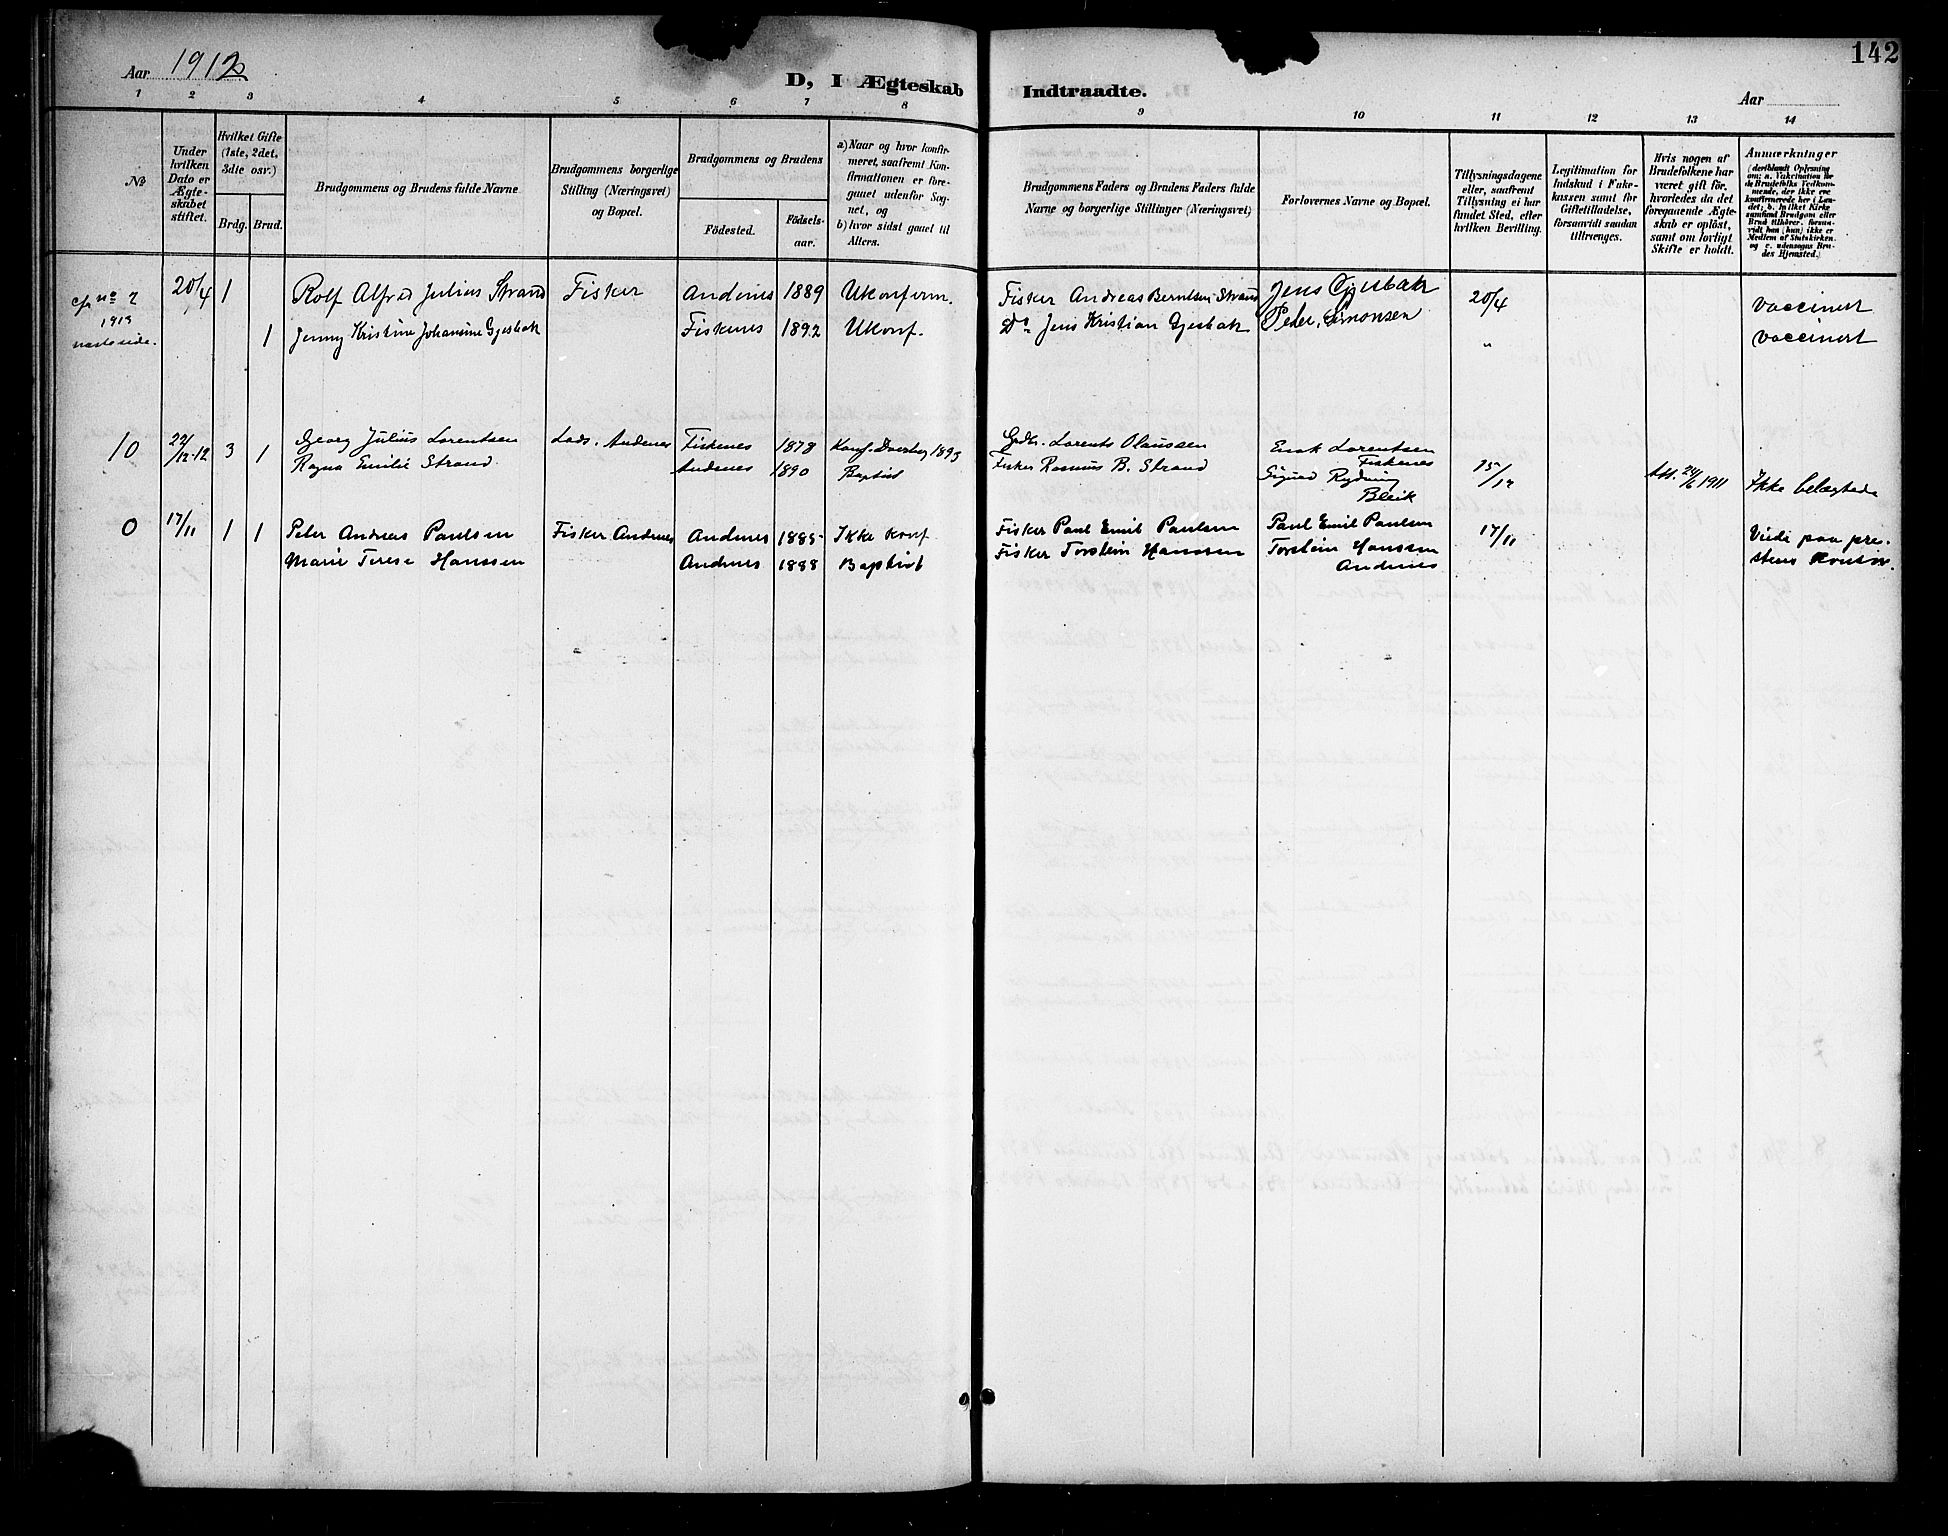 142
Aar 1912
D, I Ægteskab Indtraadte.
Aar
1 2 3 4 5 6 7 8 9 10 11 12 13 14
No
Under hvilken Dato er Ægteskabet stiftet.
Hvilket Gifte (1ste, 2det, 3die osv.)
Brdg. Brud.
Brudgommens og Brudens fulde Navne
Brudgommens borgerlige Stilling (Næringsvei) og Bopæl.
Brudgommens og Brudens
Födested. Födsels-aar.
a) Naar og hvor konfirmeret, saafremt Konfirmationen er foregaaet udenfor Sognet, og
b) hvor sidst gaaet til Alters.
Brudgommens Faders og Brudens Faders fulde Navne og borgerlige Stillinger (Næringsvei)
Forlovernes Navne og Bopæl.
Tillysningsdagene eller, saafremt Tillysning ei har fundet Sted, efter hvilken Bevilling.
Legitimation for Indskud i Enkekassen samt for Giftetilladelse, forsaavidt saadan tiltrænges.
Hvis nogen af Brudefolkene har været gift för, hvorledes da det foregaaende Ægteskab er oplöst, samt om lovligt Skifte er holdt.
Anmærkninger
(deriblandt Oplysning om: a. Vakcination for de Brudefolks Vedkommende, der ikke ere konfirmerede her i Landet; b. hvilket Kirkesamfund Brudgom eller Brud tilhörer, forsaavidt han (hun) ikke er Medlem af Statskirken, og c. udensogns Brudes Hjemsted.)
cfr no 2 1913 neste side.
20/4 1 Rolf Alfred Julius Strand Fisker Andenes 1889 Ukonferm. Fisker Andreas Berntsen Strand Jens Gjesbak 20/4 vaccinert
1 Jenny Kristine Johansine Gjesbak Fiskenes 1892 Ukonf. Do Jens Kristian Gjesbak Peder Simonsen " vaccinert
10 22/12-12 3 Georg Julius Lorentsen Lods. Andenes Fiskenes 1878 Konf. Dverberg 1893 Grdbr. Lorents Olaussen Enok Lorentsen Fiskenes 15/12 Att. 24/6 1911 Ikke belægtede
1 Ragna Emilie Strand Andenes 1890 Baptist Fisker Rasmus B. Strand Sigurd Ryding Bleik
0 17/11 1 1 Peter Andreas Paulsen Fisker Andenes Andenes 1885 Ikke konf. Fisker Paul Emil Paulsen Paul Emil Paulsen 17/11 Viede paa pre-
Marie Terese Hanssen Andenes 1888 Baptist Fisker Torstein Hanssen Torstein Hanssen Andenes stens kontor.